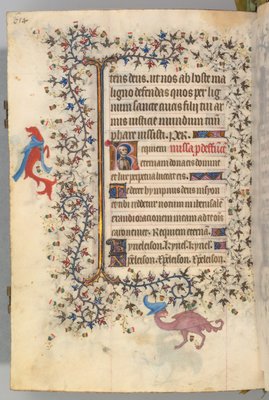 614
tens deus. ut nos ab hoste ma
ligno defendas quos per lig
num sancte crucis filij tui ar
mis iusticie mundum
phare iussisti. Per.
Requiem missa p defunctis
eternam dona eis domine
et lux perpetua luceat eis.
Te decet ympnus deus in syon
et tibi redetur votum in iherusalem
exaudi oracionem meam ad te ois
caro veniet. Requiem eternā.
Kyrieleison. Kyriel. Kyriel.
Xpeleison. Xpeleison. Xpeleison.